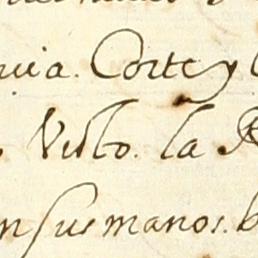 uia. Corte y
Visto. la R
en sus manos. b